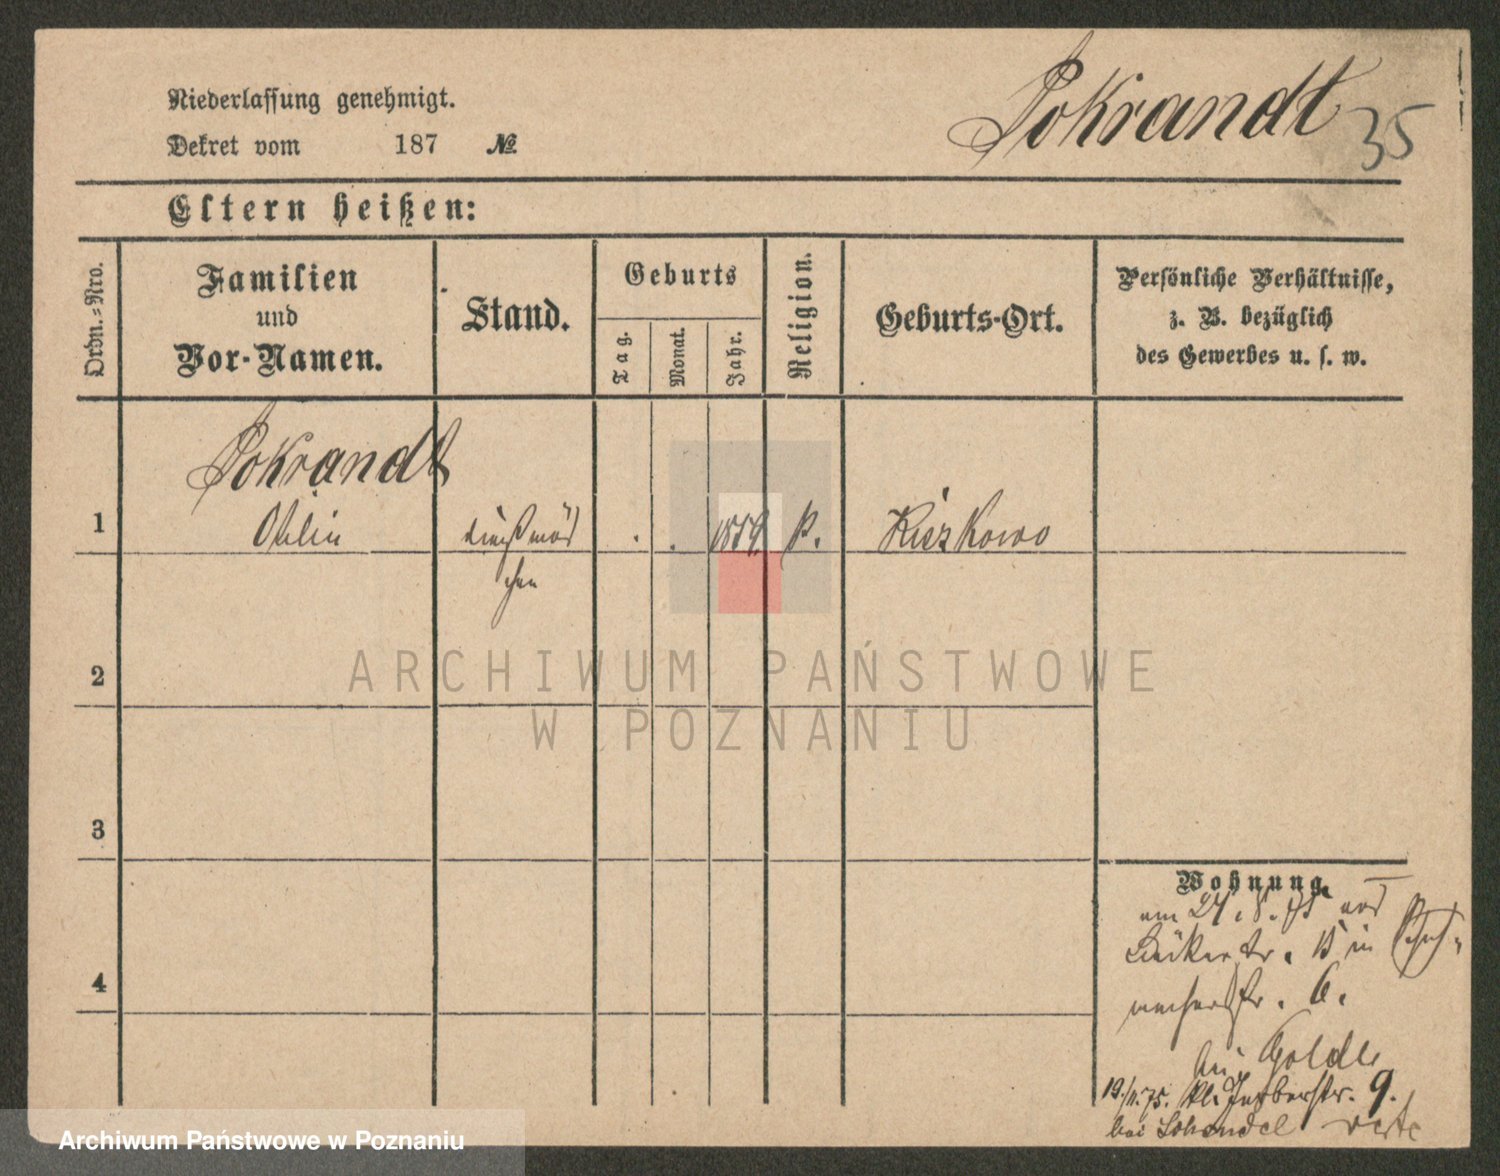 Niederlassung genehmigt.
Dekret vom 187 №
Pokrandt 35
Eltern heißen:
Ordn.-Nro.
Familien
und
Vor-Namen.
Stand.
Geburts
Tag.
Monat.
Jahr.
Religion.
Geburts-Ort.
Persönliche Verhältnisse,
z. B. bezüglich
des Gewerbes u. s. w.
Pokrandt
1 dienstmäd
chen
Kiszkowo
2
3
4
ARCHIWUM PAŃSTWOWE
W POZNANIU
Wohnung.
am 24.8.75 von
Bäckerstr. 15 in Schuh-
macherstr. 6.
bei Goldle
19./11.75. Kl. Gerberstr. 9.
bei verte
Archiwum Państwowe w Poznaniu